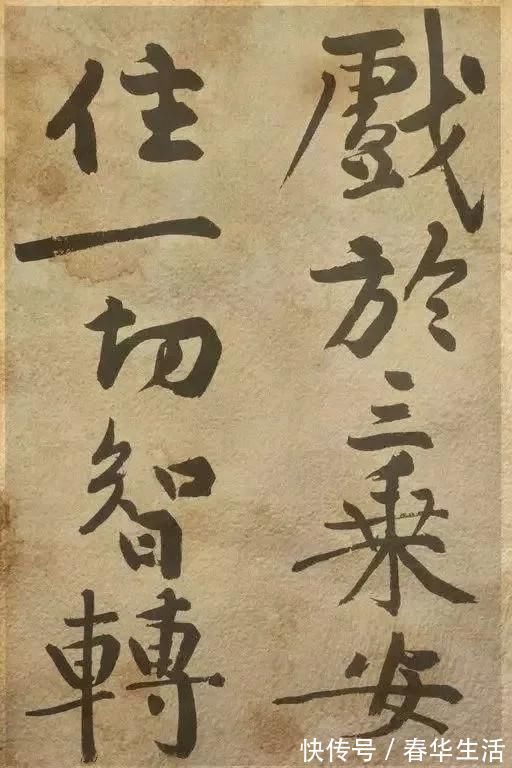 戲於三乗安
住一切智轉
快传号 / 春华生活